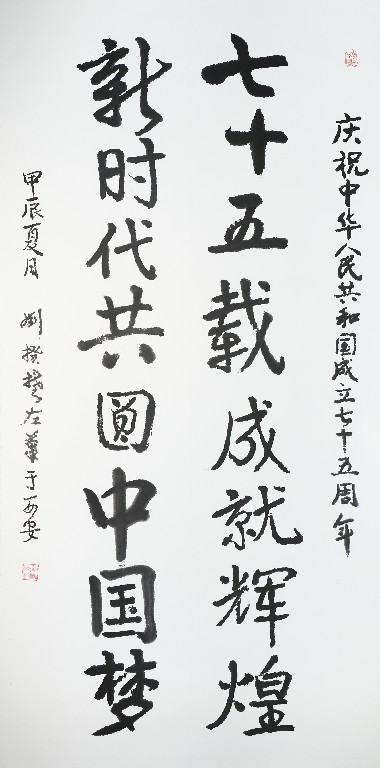 庆祝中华人民共和国成立七十五周年
七十五載成就辉煌
新时代共圆中国梦
甲辰夏月 左笔于西安